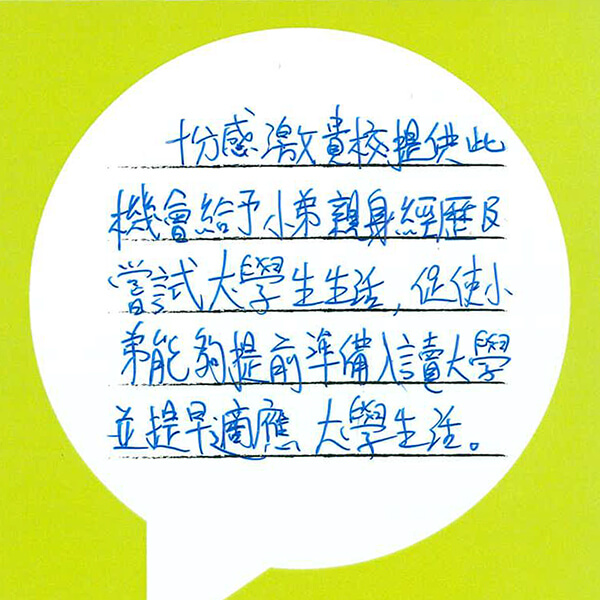 十分感激貴校提供此
機會給予小弟親身經歷及
嘗試大學生生活,促使小
弟能夠提前準備入讀大學
並提早適應大學生活。